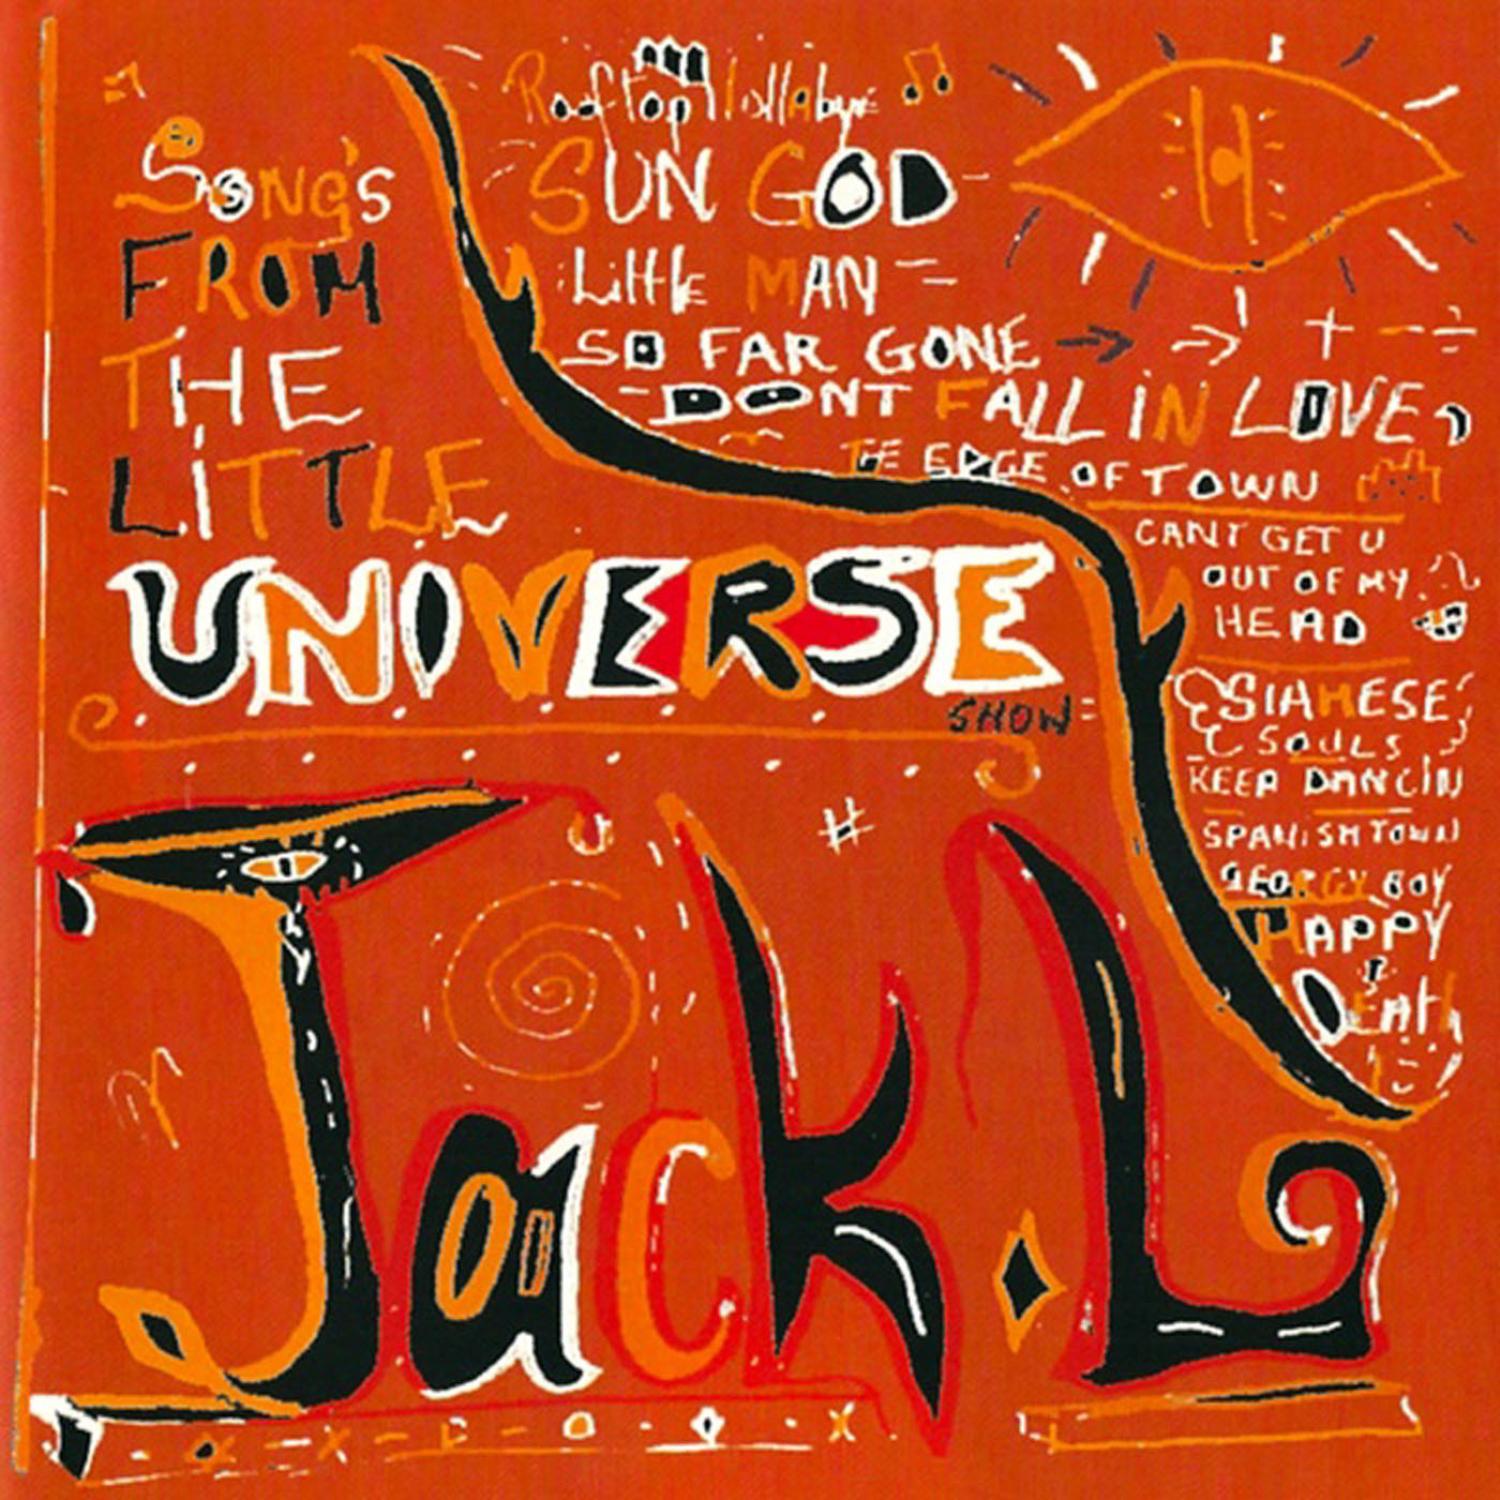 Song's
FROM
THE
LITTLE
UNIVERSE
SHOW
Rooftop lullabye
SUN GOD
Little MAN
SO FAR GONE
DONT FALL iN LOVE
THE EDGE OF TOWN
CANT GET U
OUT OF MY
HEAD
SIAMESE
SOULS
KEEP DANCIN
SPANiSH TOWN
GEORGY BOY
HAPPY
DEAth
Jack.L